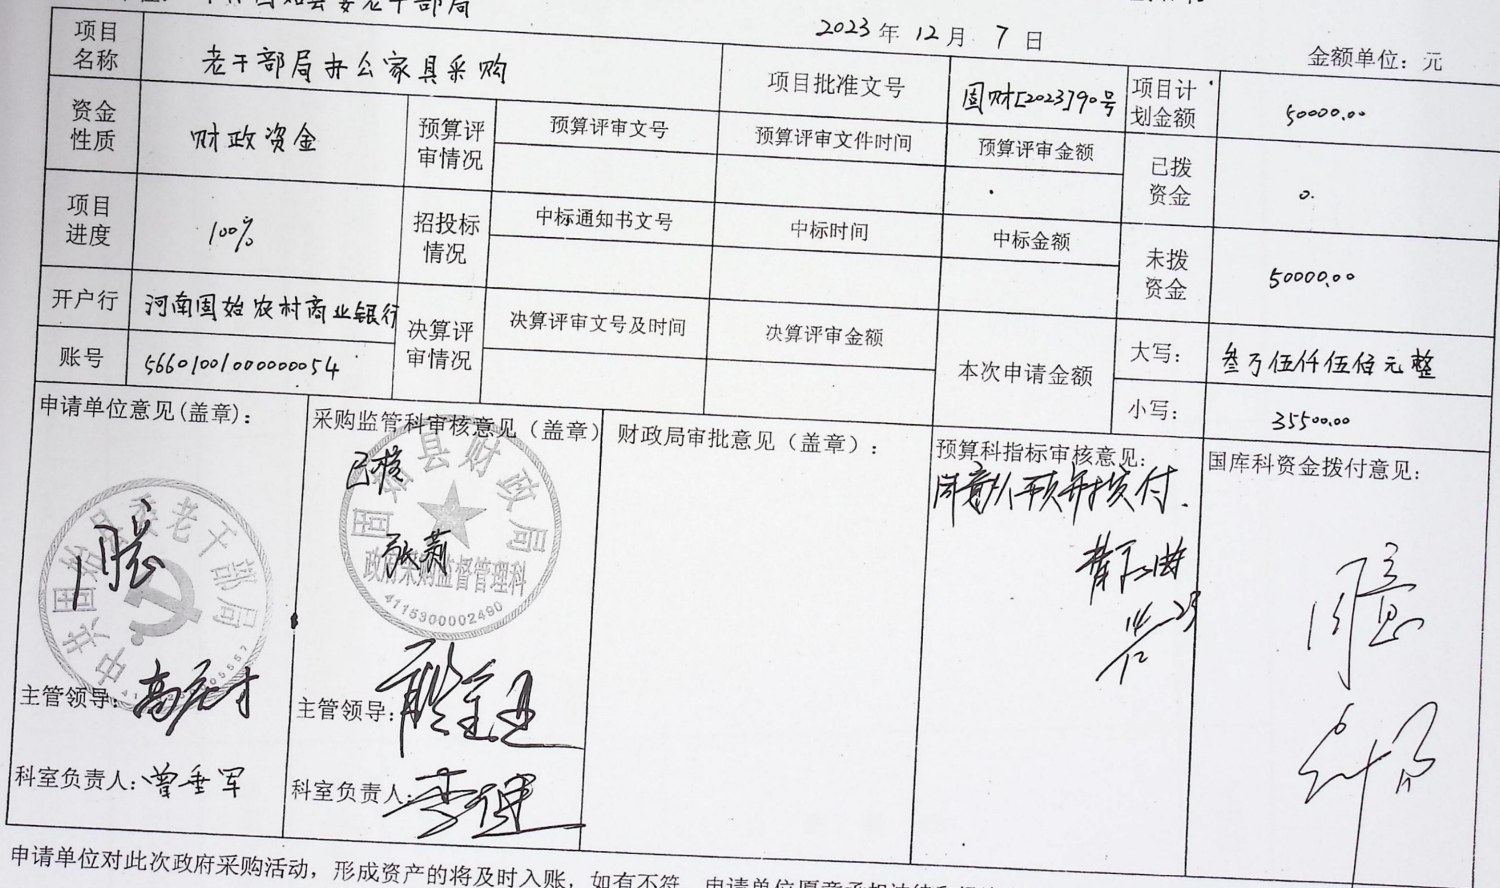 固始县委老干部局
2023年12月7日
金额单位：元
项目名称
老干部局办公家具采购
项目批准文号
固财[2023]90号
项目计划金额
50000.00
资金性质
财政资金
预算评审情况
预算评审文号
预算评审文件时间
预算评审金额
已拨资金
0.
项目进度
100%
招投标情况
中标通知书文号
中标时间
中标金额
未拨资金
50000.00
开户行
河南固始农村商业银行
决算评审情况
决算评审文号及时间
决算评审金额
本次申请金额
大写：
叁万伍仟伍佰元整
账号
56601001000000054
小写：
35500.00
申请单位意见(盖章)：
同意
中共固始县委老干部局
主管领导：
科室负责人：曾垂军
采购监管科审核意见（盖章）
已核
固始县财政局
政府采购监督管理科
4115300002490
主管领导：
科室负责人：李健
财政局审批意见（盖章）：
预算科指标审核意见：
国库科资金拨付意见：
同意
申请单位对此次政府采购活动，形成资产的将及时入账，如有不符，申请单位愿意承担法律